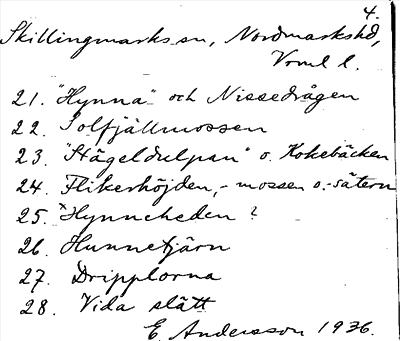 4.
Skillingmarks sn, Nordmarkshd,
Vrml l.
21. "Hynna" och Nissedrågen
22. Solfjällmossen
23. "Stägeldulpan" o. Kokebäcken
24. Flikerhöjden, - mossen o. -sätern
25. Hynneheden ?
26. Hunnetjärn
27. Dripplorna
28. Vida slätt
E. Andersson 1936.